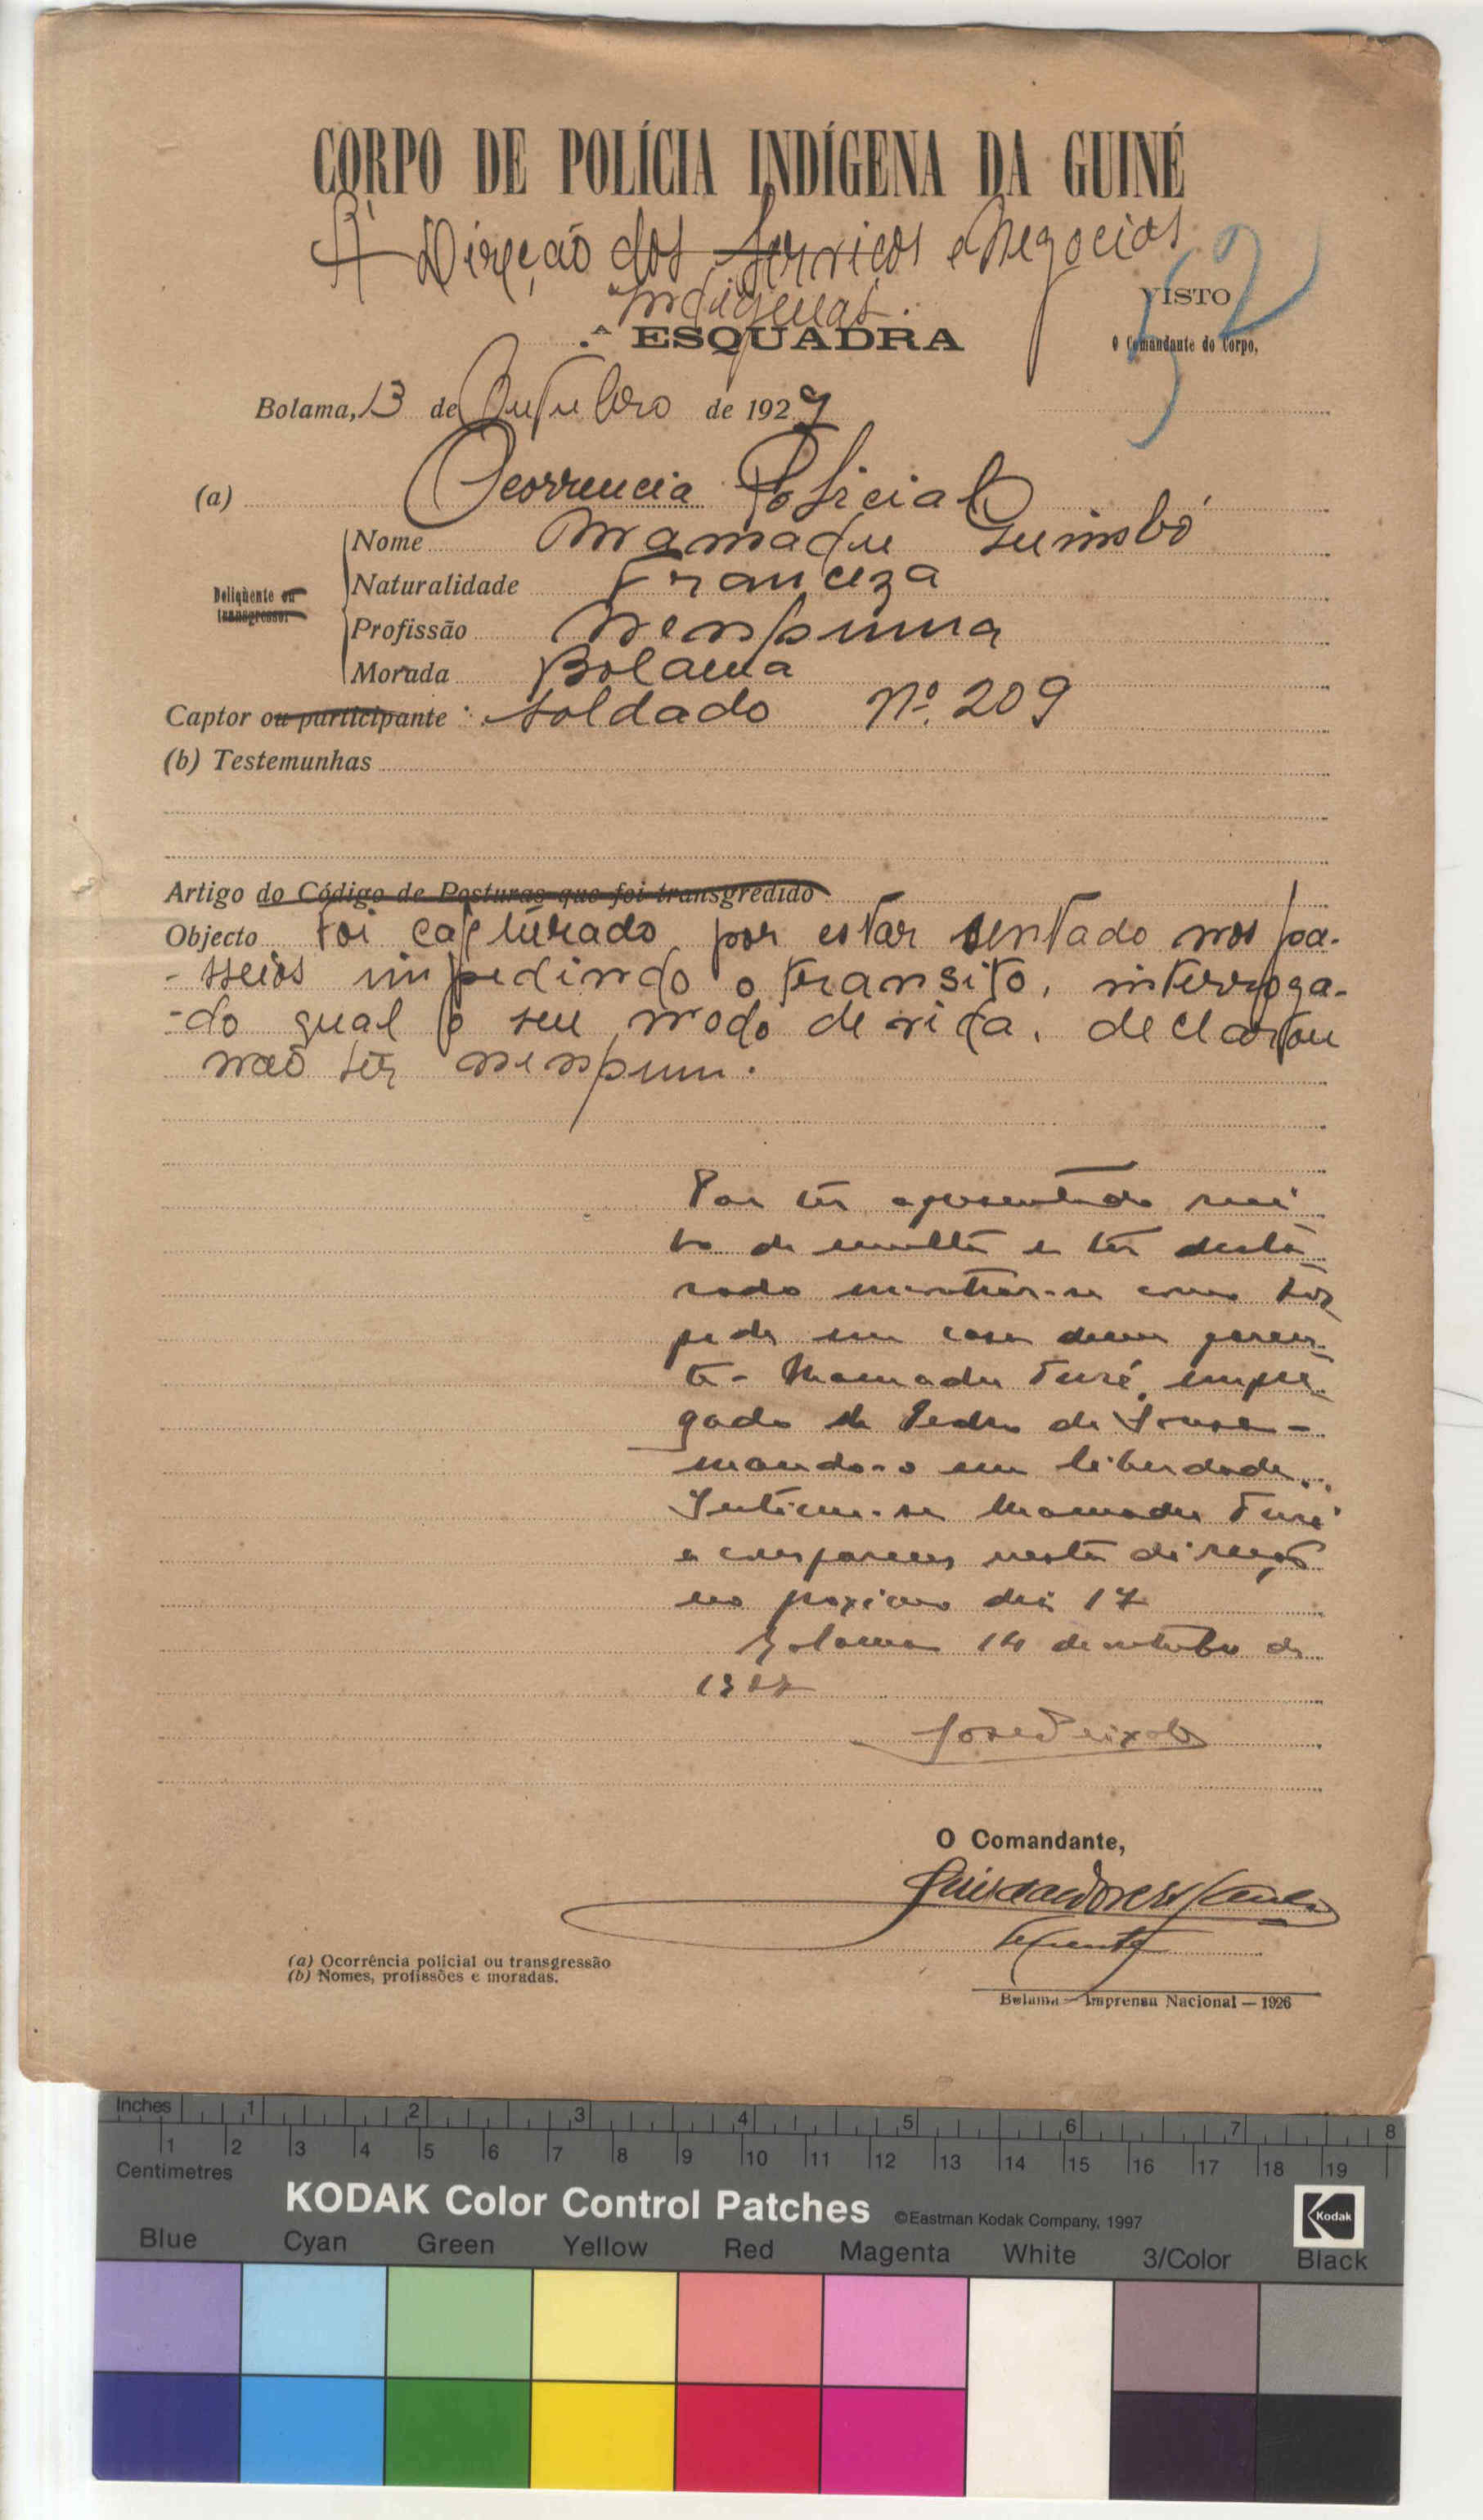 CORPO DE POLÍCIA INDÍGENA DA GUINÉ
Á Direção dos Serviços e Negocios
Indigenas.
52
VISTO
.ª ESQUADRA
O Comandante do Corpo,
Bolama, 13 de Outubro de 1927
(a) Ocorrencia Policial
Delinqùente ou transgressor
Nome Mamadu
Naturalidade Franceza
Profissão Nenhuma
Morada Bolama
Captor ou participante : Soldado Nº. 209
(b) Testemunhas
Artigo do Código de Posturas que foi transgredido
Objecto Foi capturado por estar sentado nos pa-
-sseios impedindo o transito, interroga-
-do qual o seu modo de vida, declarou
não ter nenhum.
Por ter apresentado reci
bo de multa e ter decla
rado encontrar-se como hos
pede em casa dum paren
te - Mamadu Turé, empre
gado de Pedro de Sousa -
mando-o em liberdade.
Intime-se Mamadu Turé
a comparecer nesta direcção
no proximo dia 17
Bolama 14 de outubro de
1927
José Peixoto
O Comandante,
Tenente
(a) Ocorrência policial ou transgressão
(b) Nomes, profissões e moradas.
Bolama — Imprensa Nacional — 1926
Inches 1 2 3 4 5 6 7 8
1 2 3 4 5 6 7 8 9 10 11 12 13 14 15 16 17 18 19
Centimetres
KODAK Color Control Patches ©Eastman Kodak Company, 1997 Kodak
Blue Cyan Green Yellow Red Magenta White 3/Color Black